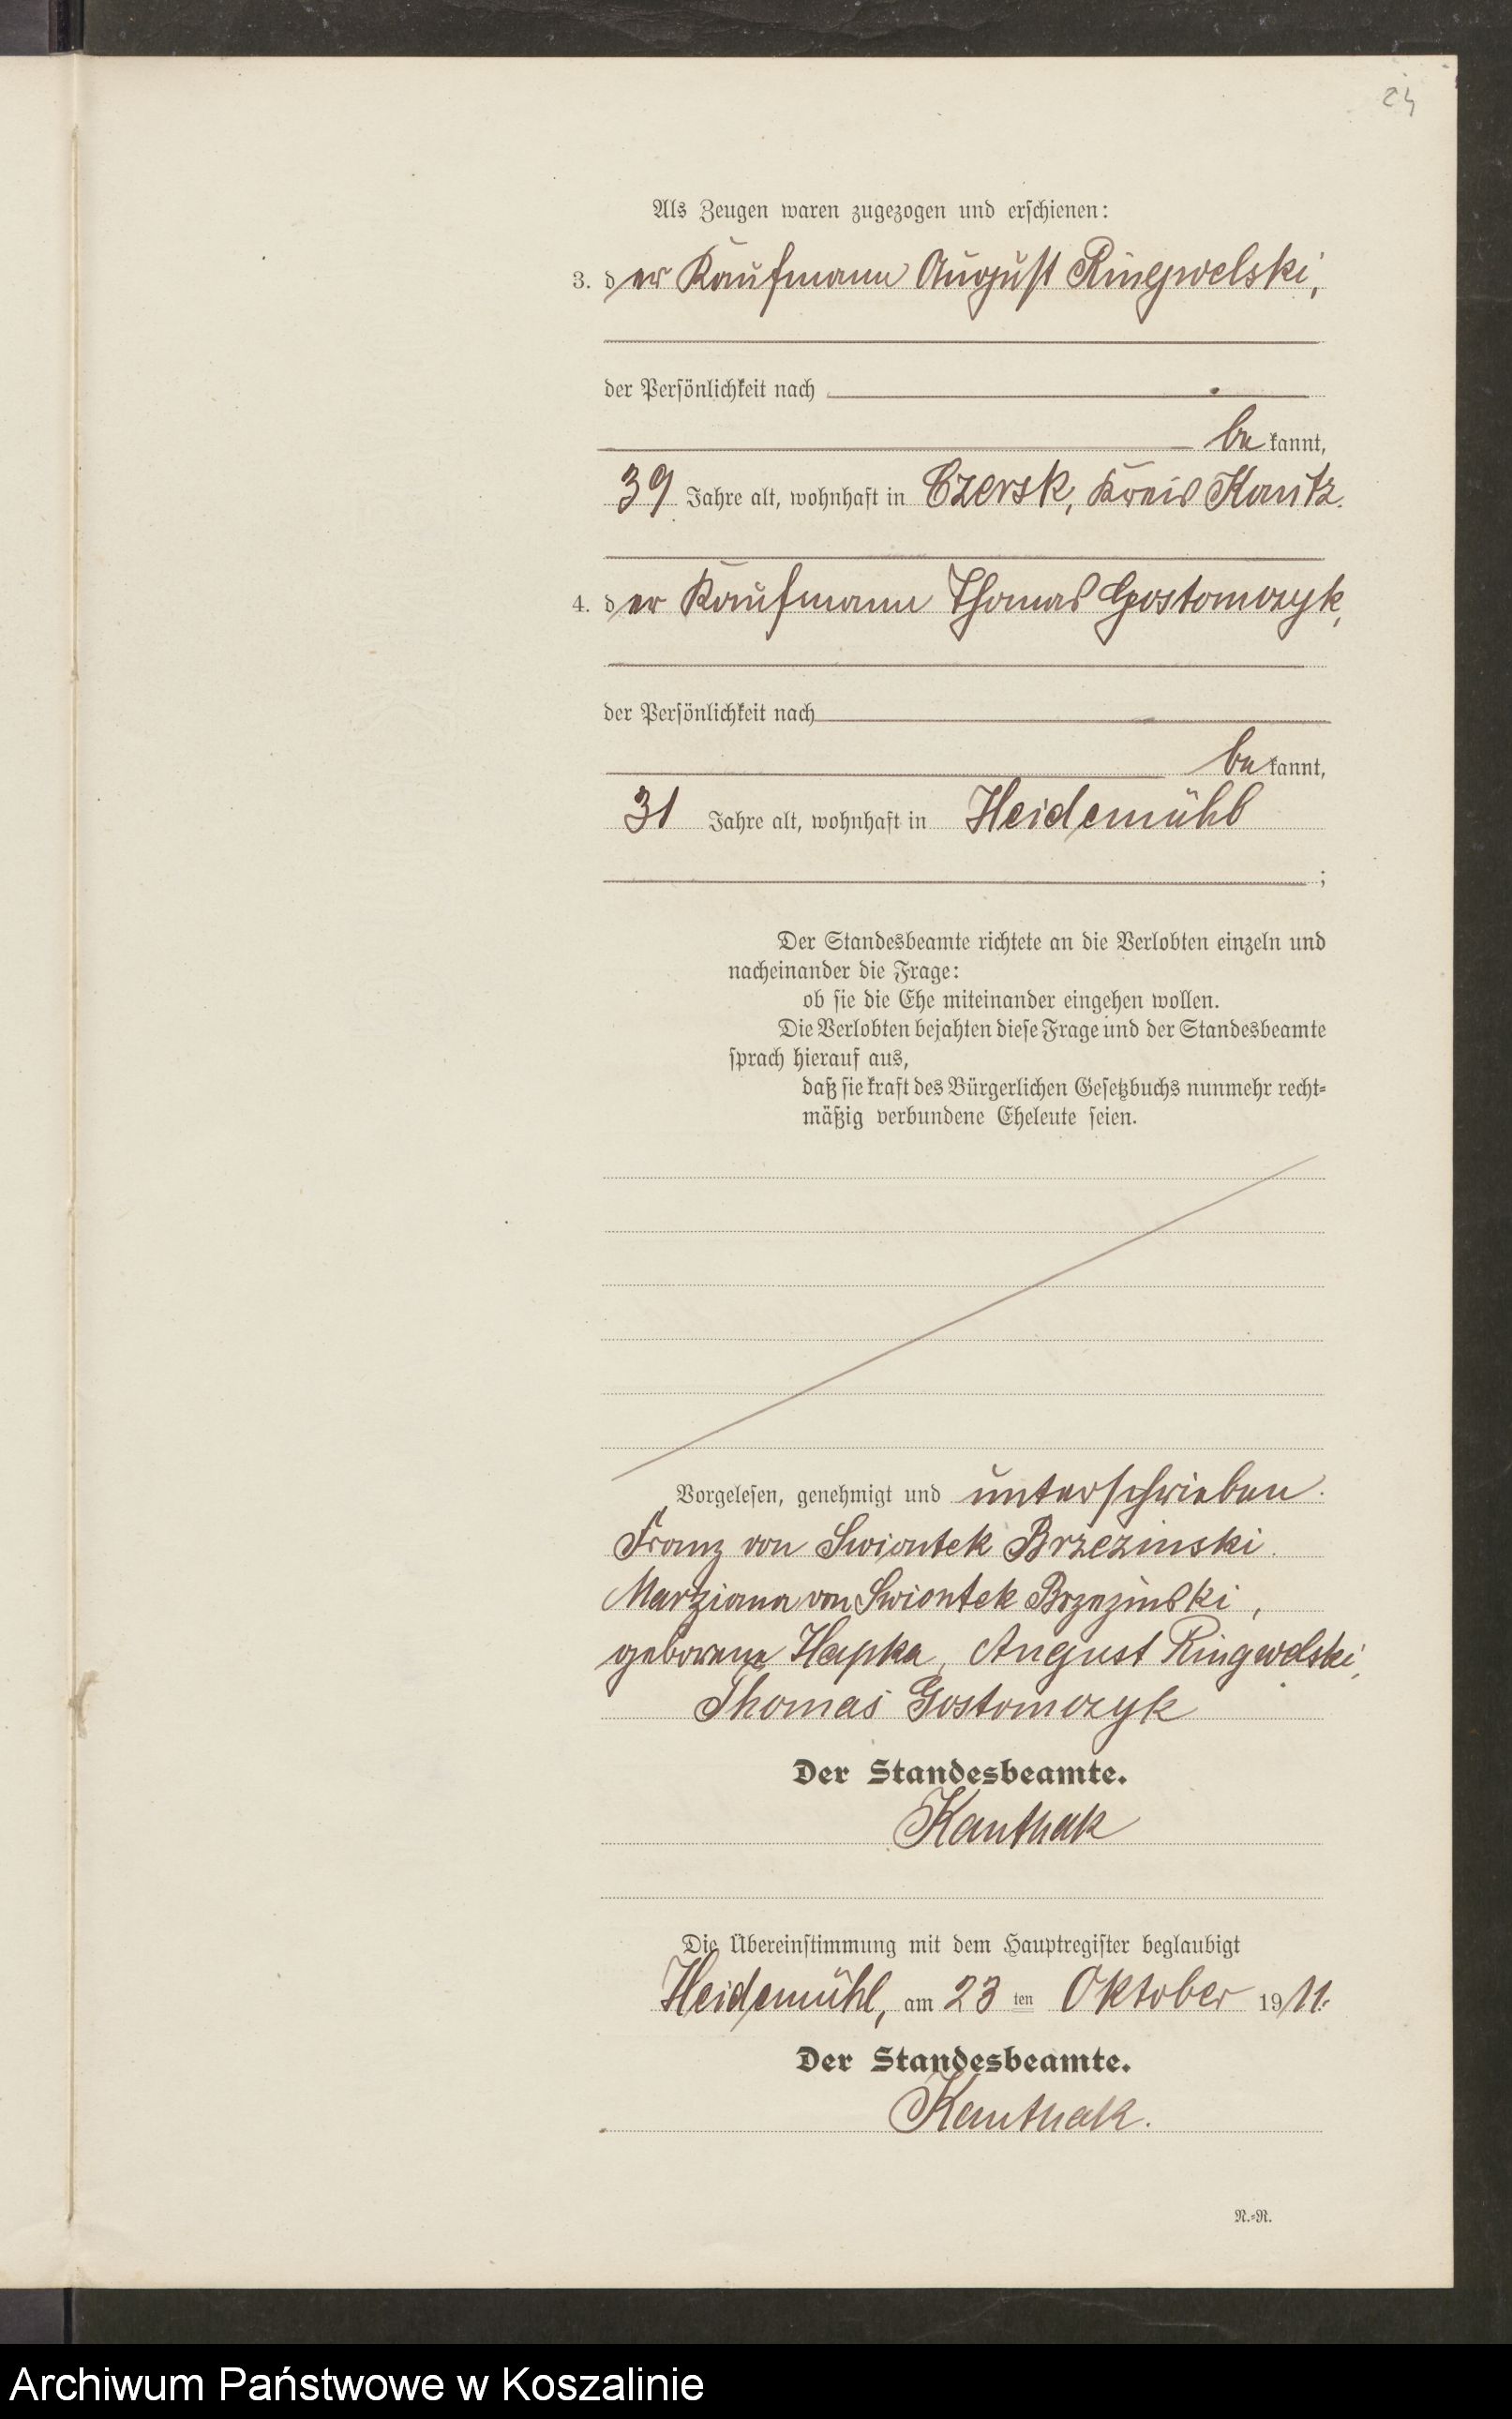 24
Als Zeugen waren zugezogen und erschienen:
3. der Kaufmann August Ringwelski,
der Persönlichkeit nach
bekannt,
39 Jahre alt, wohnhaft in Czersk, Kreis Konitz.
4. der Kaufmann Thomas Gostomczyk,
der Persönlichkeit nach
bekannt,
31 Jahre alt, wohnhaft in Heidemühl
;
Der Standesbeamte richtete an die Verlobten einzeln und
nacheinander die Frage:
ob sie die Ehe miteinander eingehen wollen.
Die Verlobten bejahten diese Frage und der Standesbeamte
sprach hierauf aus,
daß sie kraft des Bürgerlichen Gesetzbuchs nunmehr recht-
mäßig verbundene Eheleute seien.
Vorgelesen, genehmigt und unterschrieben.
Franz von Swiontek Brzezinski.
Marziana von Swiontek Brzezinski,
geborene Hapka, August Ringwelski,
Thomas Gostomczyk
Der Standesbeamte.
Kanthak
Die Übereinstimmung mit dem Hauptregister beglaubigt
Heidemühl, am 23 ten Oktober 1911.
Der Standesbeamte.
Kanthak.
N.-R.
Archiwum Państwowe w Koszalinie